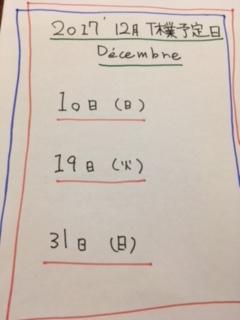 2017' 12月 休業予定日
Décembre
10日 (日)
19日 (火)
31日 (日)